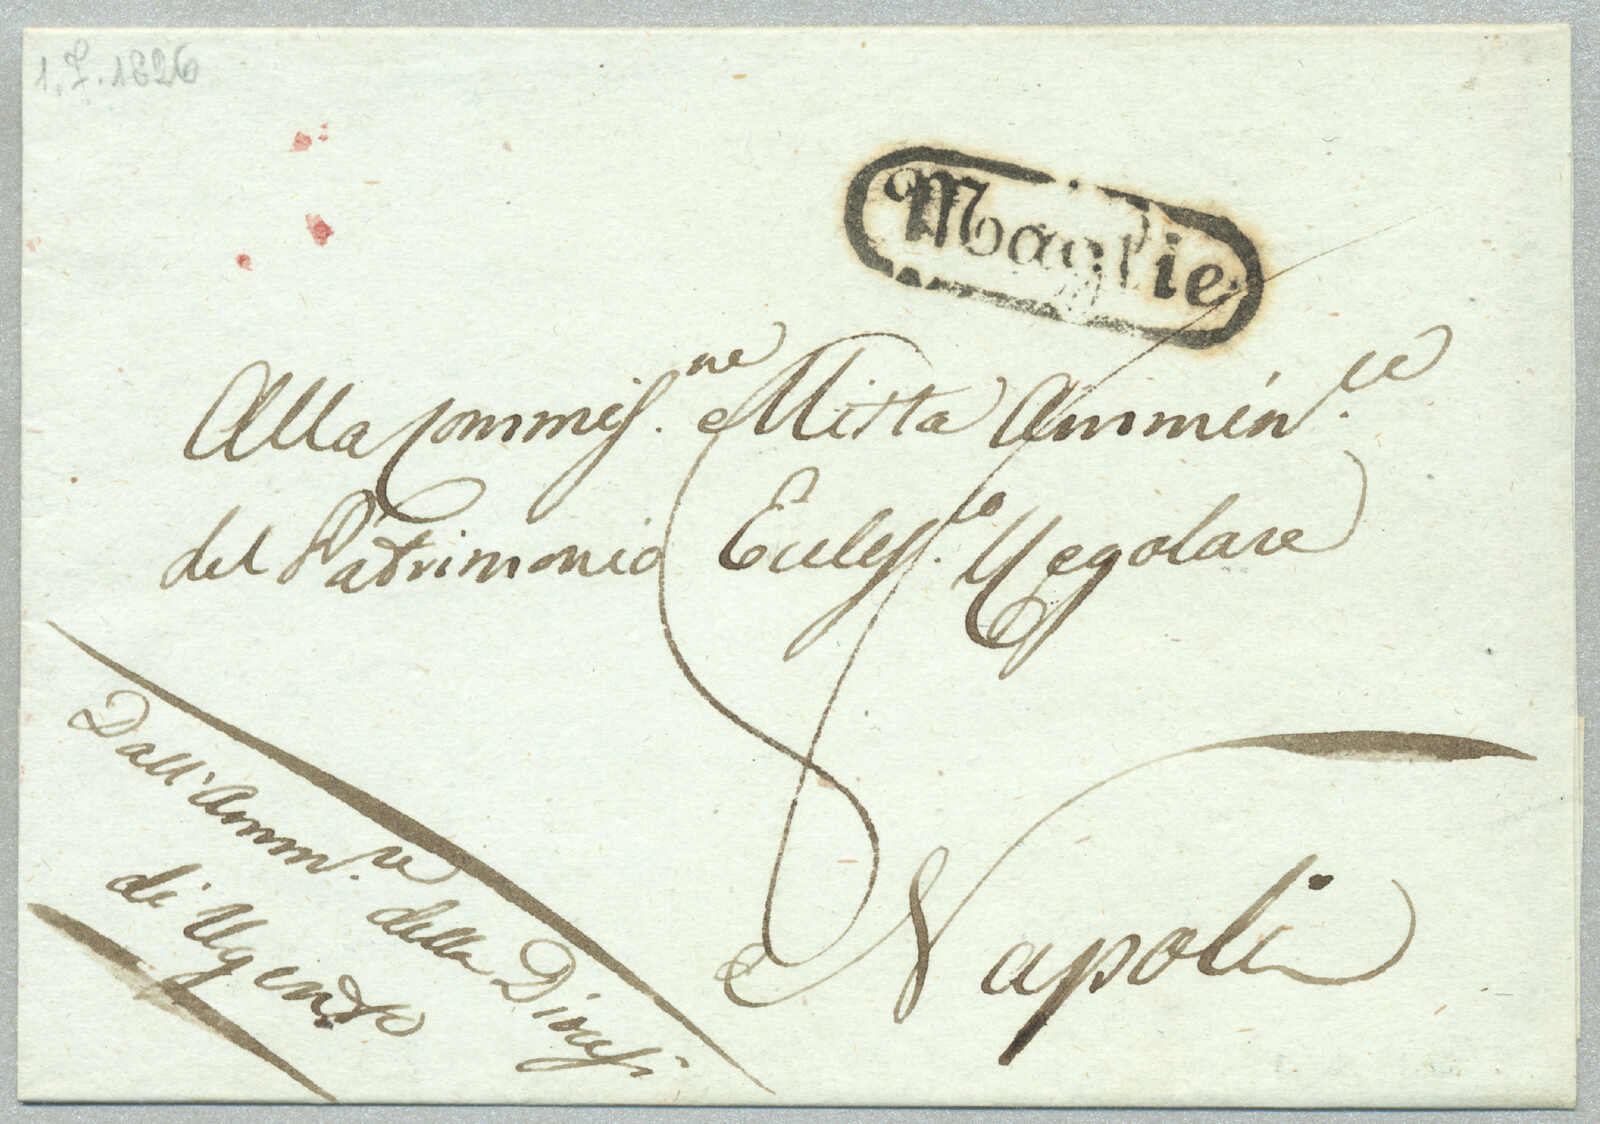 1.7.1826
Maglie
Alla Commiss.ne Mista Ammin.ce
del Patrimonio Eccless.co Regolare
Napoli
Dall'Amm.ne della Diocesi
di Ugento